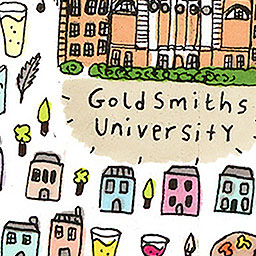 Goldsmiths
University